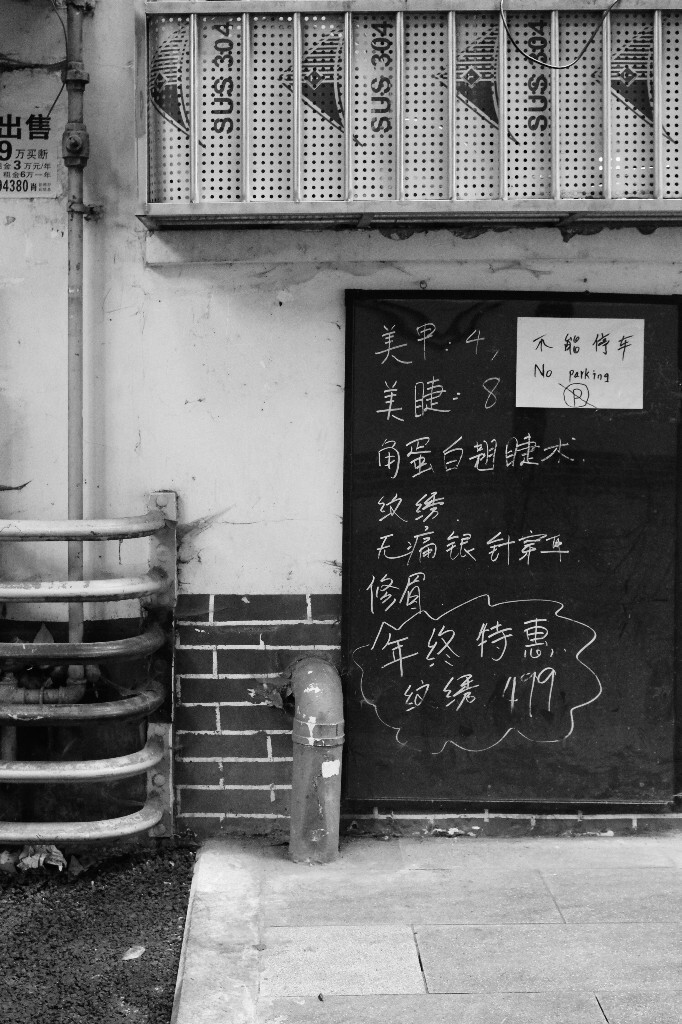 SUS 304
SUS 304
SUS 304
出售
9万买断
金3万元/年
租金6万一年
04380肖
美甲:4,
美睫:8
角蛋白翘睫术.
纹绣.
无痛银针穿耳
修眉
年终特惠.
纹绣 199
不能停车
No parking
P